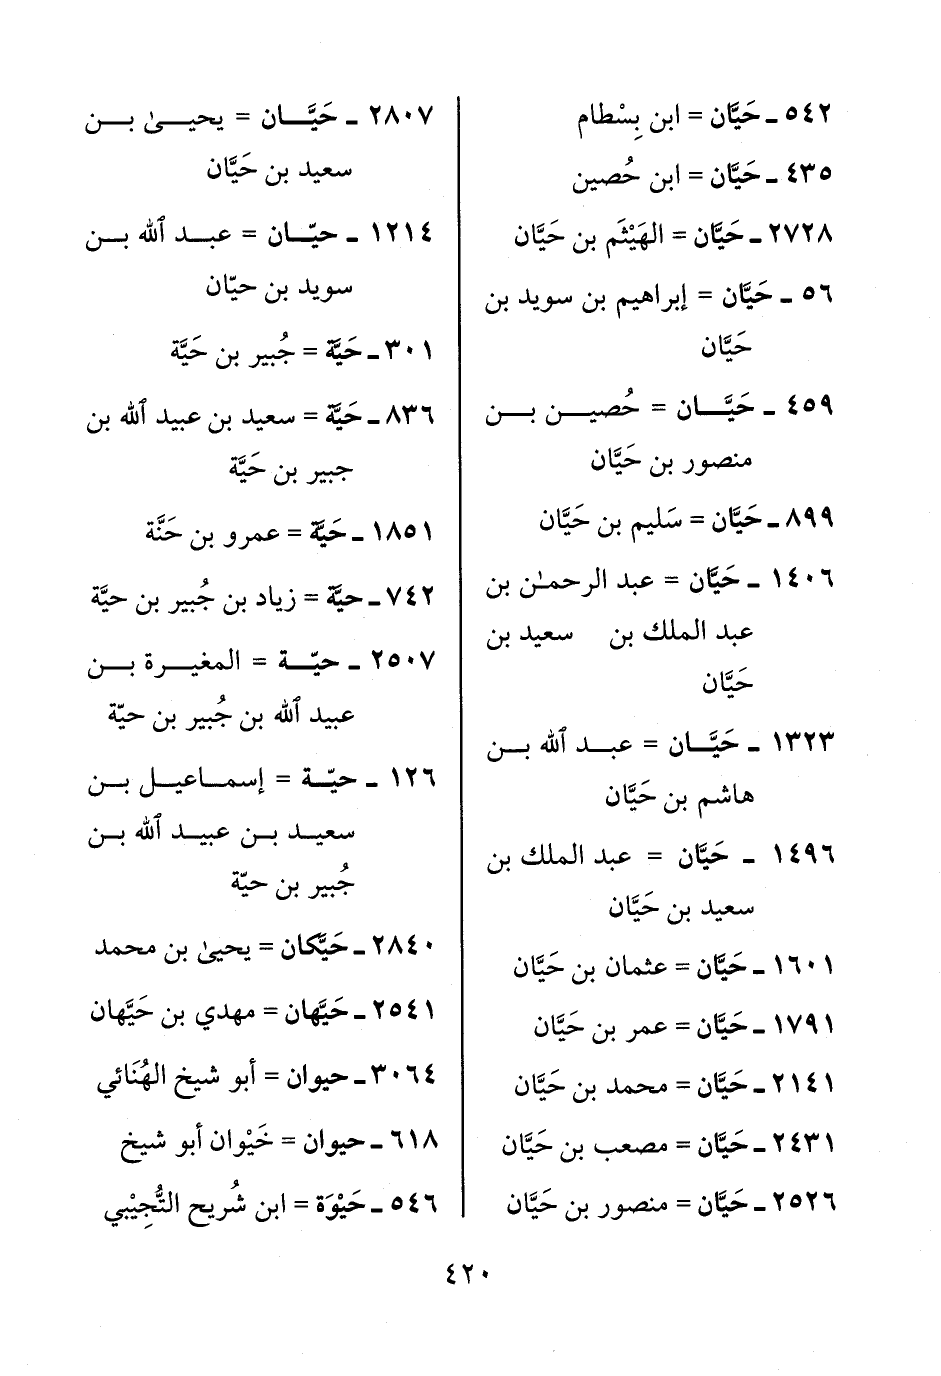 ٥٤٢ ـ حَيَّان = ابن بِسْطام
٤٣٥ ـ حَيَّان = ابن حُصين
٢٧٢٨ ـ حَيَّان = الهَيْثَم بن حَيَّان
٥٦ ـ حَيَّان = إبراهيم بن سويد بن
حَيَّان
٤٥٩ ـ حَيَّــان = حُصيــن بــن
منصور بن حَيَّان
٨٩٩ ـ حَيَّان = سَليم بن حَيَّان
١٤٠٦ ـ حَيَّان = عبد الرحمٰن بن
عبد الملك بن سعيد بن
حَيَّان
١٣٢٣ ـ حَيَّــان = عبــد ٱلله بــن
هاشم بن حَيَّان
١٤٩٦ ـ حَيَّان = عبد الملك بن
سعيد بن حَيَّان
١٦٠١ ـ حَيَّان = عثمان بن حَيَّان
١٧٩١ ـ حَيَّان = عمر بن حَيَّان
٢١٤١ ـ حَيَّان = محمد بن حَيَّان
٢٤٣١ ـ حَيَّان = مصعب بن حَيَّان
٢٥٢٦ ـ حَيَّان = منصور بن حَيَّان
٢٨٠٧ ـ حَيَّــان = يحيــىٰ بــن
سعيد بن حَيَّان
١٢١٤ ـ حيّــان = عبــد ٱلله بــن
سويد بن حيّان
٣٠١ ـ حَيَّة = جُبير بن حَيَّة
٨٣٦ ـ حَيَّة = سعيد بن عبيد ٱلله بن
جبير بن حَيَّة
١٨٥١ ـ حَيَّة = عمرو بن حَنَّة
٧٤٢ ـ حيَّة = زياد بن جُبير بن حيَّة
٢٥٠٧ ـ حيّــة = المغيــرة بــن
عبيد ٱلله بن جُبير بن حيّة
١٢٦ ـ حيّــة = إسمــاعيــل بــن
سعيــد بــن عبيــد ٱلله بــن
جُبير بن حيّة
٢٨٤٠ ـ حَيَّكان = يحيىٰ بن محمد
٢٥٤١ ـ حَيَّهان = مهدي بن حَيَّهان
٣٠٦٤ ـ حيوان = أبو شيخ الهُنَائي
٦١٨ ـ حيوان = خَيْوان أبو شيخ
٥٤٦ ـ حَيْوَة = ابن شُريح التُّجِيْبي
٤٢٠